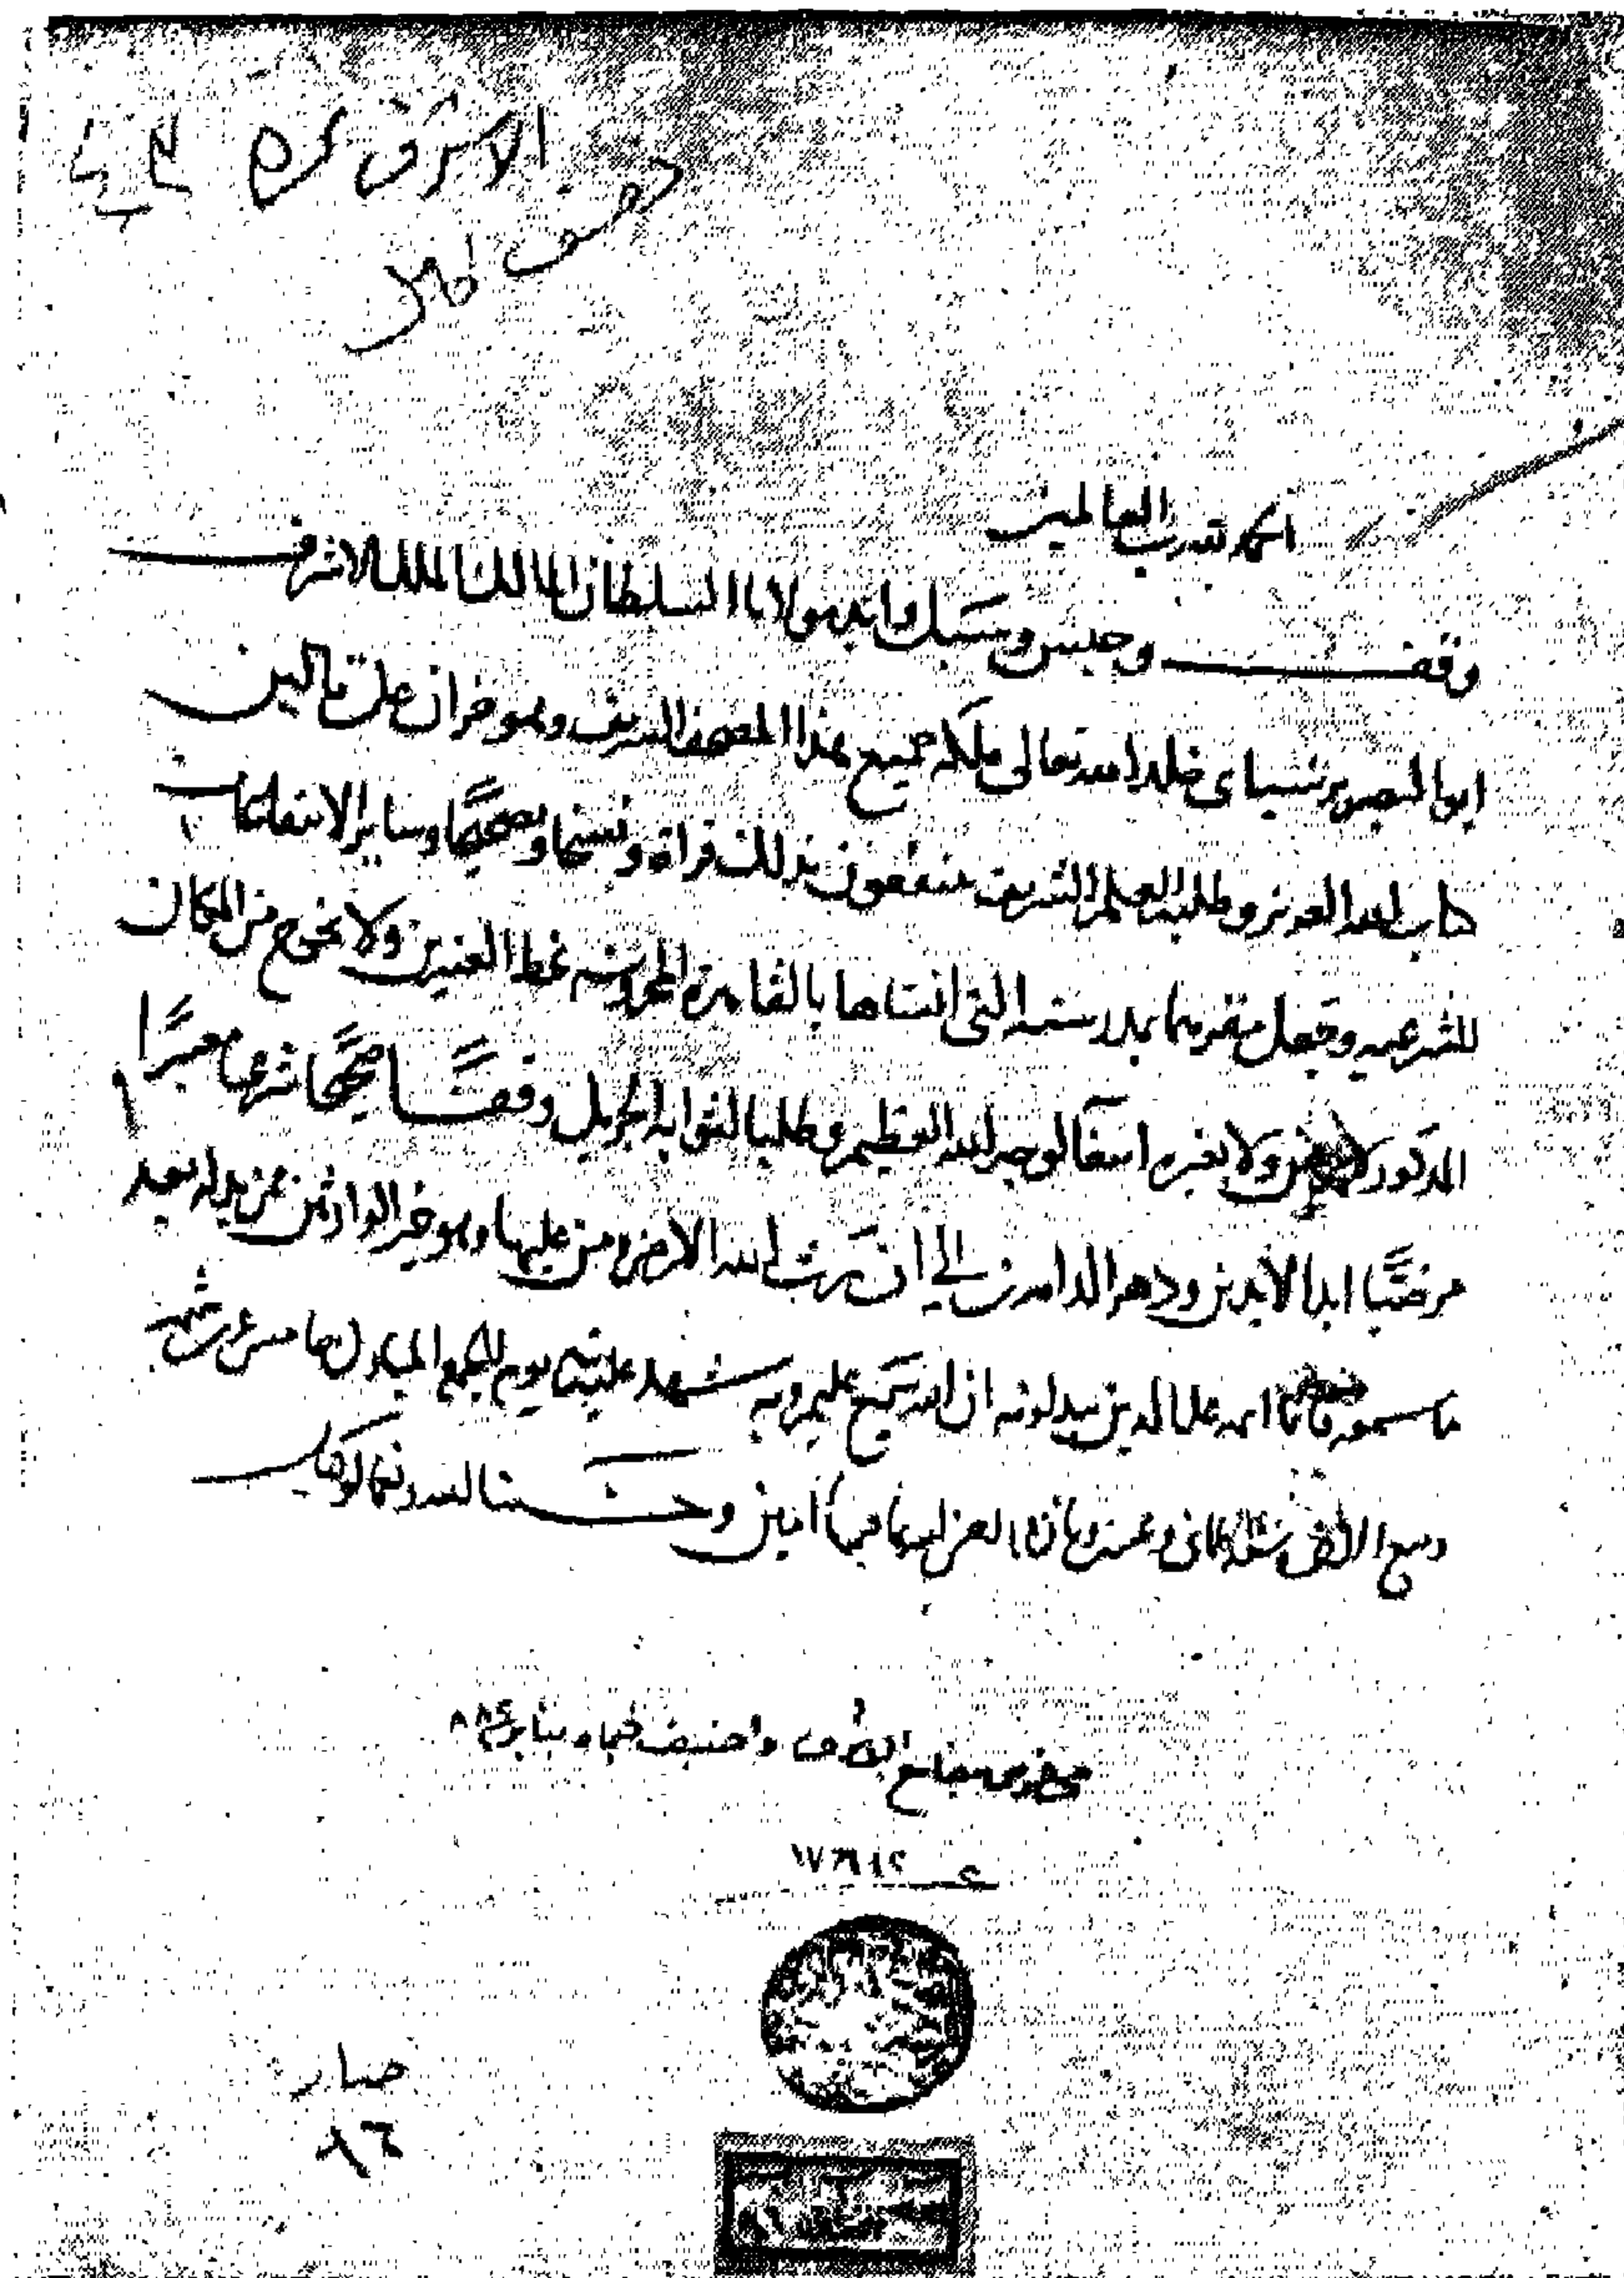 الاشرف
مصحف كامل
الحمد لله رب العالمين
وقف وحبس وسبل وابد مولانا السلطان المالك الملك الاشرف
ابو النصر برسباى خلد الله تعالى ملكه جميع هذا المصحف الشريف وهو جزان على تالين
كتاب الله العزيز وطلبة العلم الشريف ينتفعون بذلك قراة ونسخا وتصحيحا وساير الانتفاعات
الشرعيه وجعل مقرهما بمدرسته التي انشاها بالقاهرة المحروسه بخط العنبرين ولا يخرج من المكان
المذكور لا برهن ولا بغيره ابتغا لوجه الله العظيم وطلبا لثوابه الجزيل وقفا صحيحا شرعيا معتبرا
مرضيا ابد الابدين ودهر الداهرين الى ان يرث الله الارض ومن عليها وهو خير الوارثين فمن بدله بعد
ما سمعه فانما اثمه على الذين يبدلونه ان الله سميع عليم وبه شهد عليه في يوم الجمع المبارك خامس عشرين شهر
ربيع الاخر سنة ثمانى وعشرين وثمان امين وحسبنا الله ونعم الوكيل
واضيف في يناير
١٧٦١٤
صار
٨٦